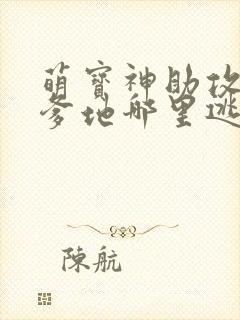 萌寶神助攻
爹地哪里逃
陳航